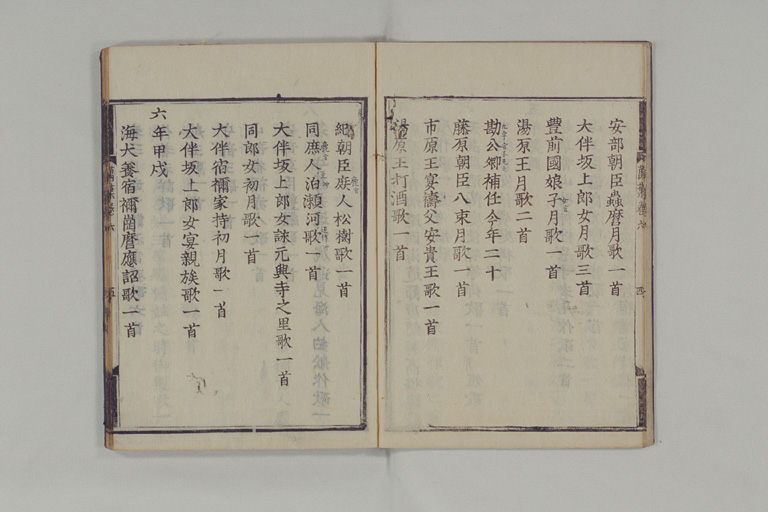 安部朝臣蟲麿月歌一首
大伴坂上郎女月歌三首
豊前國娘子月歌一首
湯原王月歌二首
勘公卿補任今年二十
藤原朝臣八束月歌一首
市原王宴濤父安貴王歌一首
湯原王打酒歌一首
紀朝臣麻人松樹歌一首
同麻人泊瀬河歌一首
大伴坂上郎女詠元興寺之里歌一首
同郎女初月歌一首
大伴宿禰家持初月歌一首
大伴坂上郎女宴親族歌一首
六年甲戌
海犬養宿禰岡麿應詔歌一首